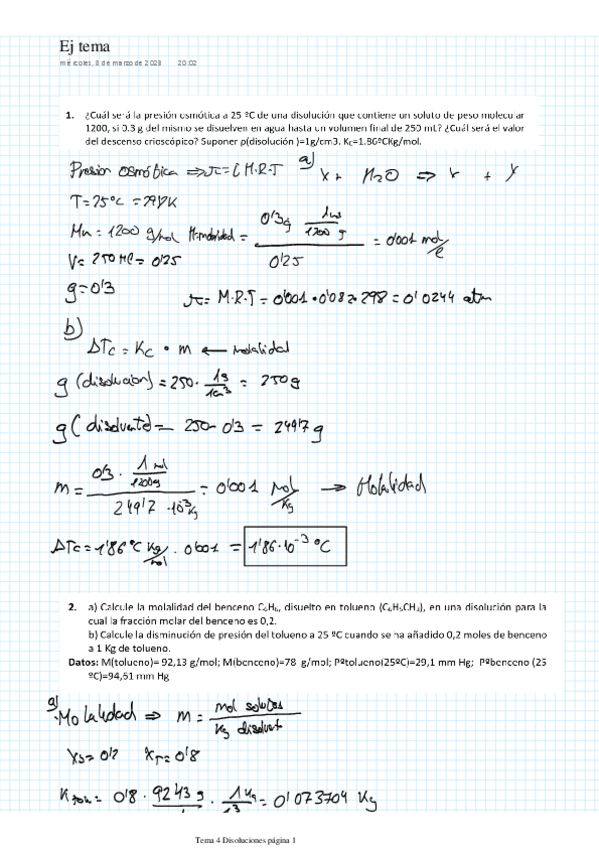 Ej tema
miércoles, 8 de marzo de 2023 20:02
1. ¿Cuál será la presión osmótica a 25 ºC de una disolución que contiene un soluto de peso molecular
1200, si 0.3 g del mismo se disuelven en agua hasta un volumen final de 250 mL? ¿Cuál será el valor
del descenso crioscópico? Suponer ρ(disolución )=1g/cm3. Kc=1.86ºCKg/mol.
Presion osmótica ⇒ π = M.R.T a) X + H2O ⇒ Y + Y
T = 25ºC = 298K
Mm = 1200 g/mol Molaridad = 0'3g 1mol/1200 g / 0'25 = 0'001 mol/l
V = 250 ml = 0'25
g = 0'3
π = M.R.T = 0'001 • 0'082 • 298 = 0'0244 atm
b)
ΔTc = Kc • m ← molalidad
g (disolucion) = 250 · 1g/1cm3 = 250 g
g ( disolvente) = 250 - 0'3 = 249'7 g
m = 0'3 · 1 mol/1200g / 249'7 · 10-3 kg = 0'001 mol/kg → Molalidad
ΔTc = 1'86 ºC kg/mol · 0'001 = 1'86·10-3 ºC
2. a) Calcule la molalidad del benceno C6H6, disuelto en tolueno (C6H5CH3), en una disolución para la
cual la fracción molar del benceno es 0,2.
b) Calcule la disminución de presión del tolueno a 25 ºC cuando se ha añadido 0,2 moles de benceno
a 1 Kg de tolueno.
Datos: M(tolueno)= 92,13 g/mol; M(benceno)=78 g/mol; Pºtolueno(25ºC)=29,1 mm Hg; Pºbenceno (25
ºC)=94,61 mm Hg
a) Molalidad ⇒ m = mol soluto / kg disolvent
XB = 0'2 XT = 0'8
= 0'8 · 9243 g · 1 kg = 0'073704 kg
Tema 4 Disoluciones página 1